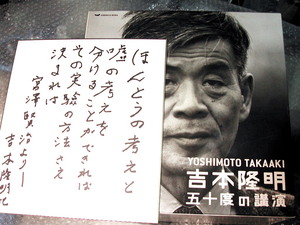 ほんとうの考えと
嘘の考えを
分けることができれば
その実験の方法さえ
決まれば
宮澤賢治より
吉本隆明記
YOSHIMOTO TAKAAKI
吉本隆明
五十度の講演